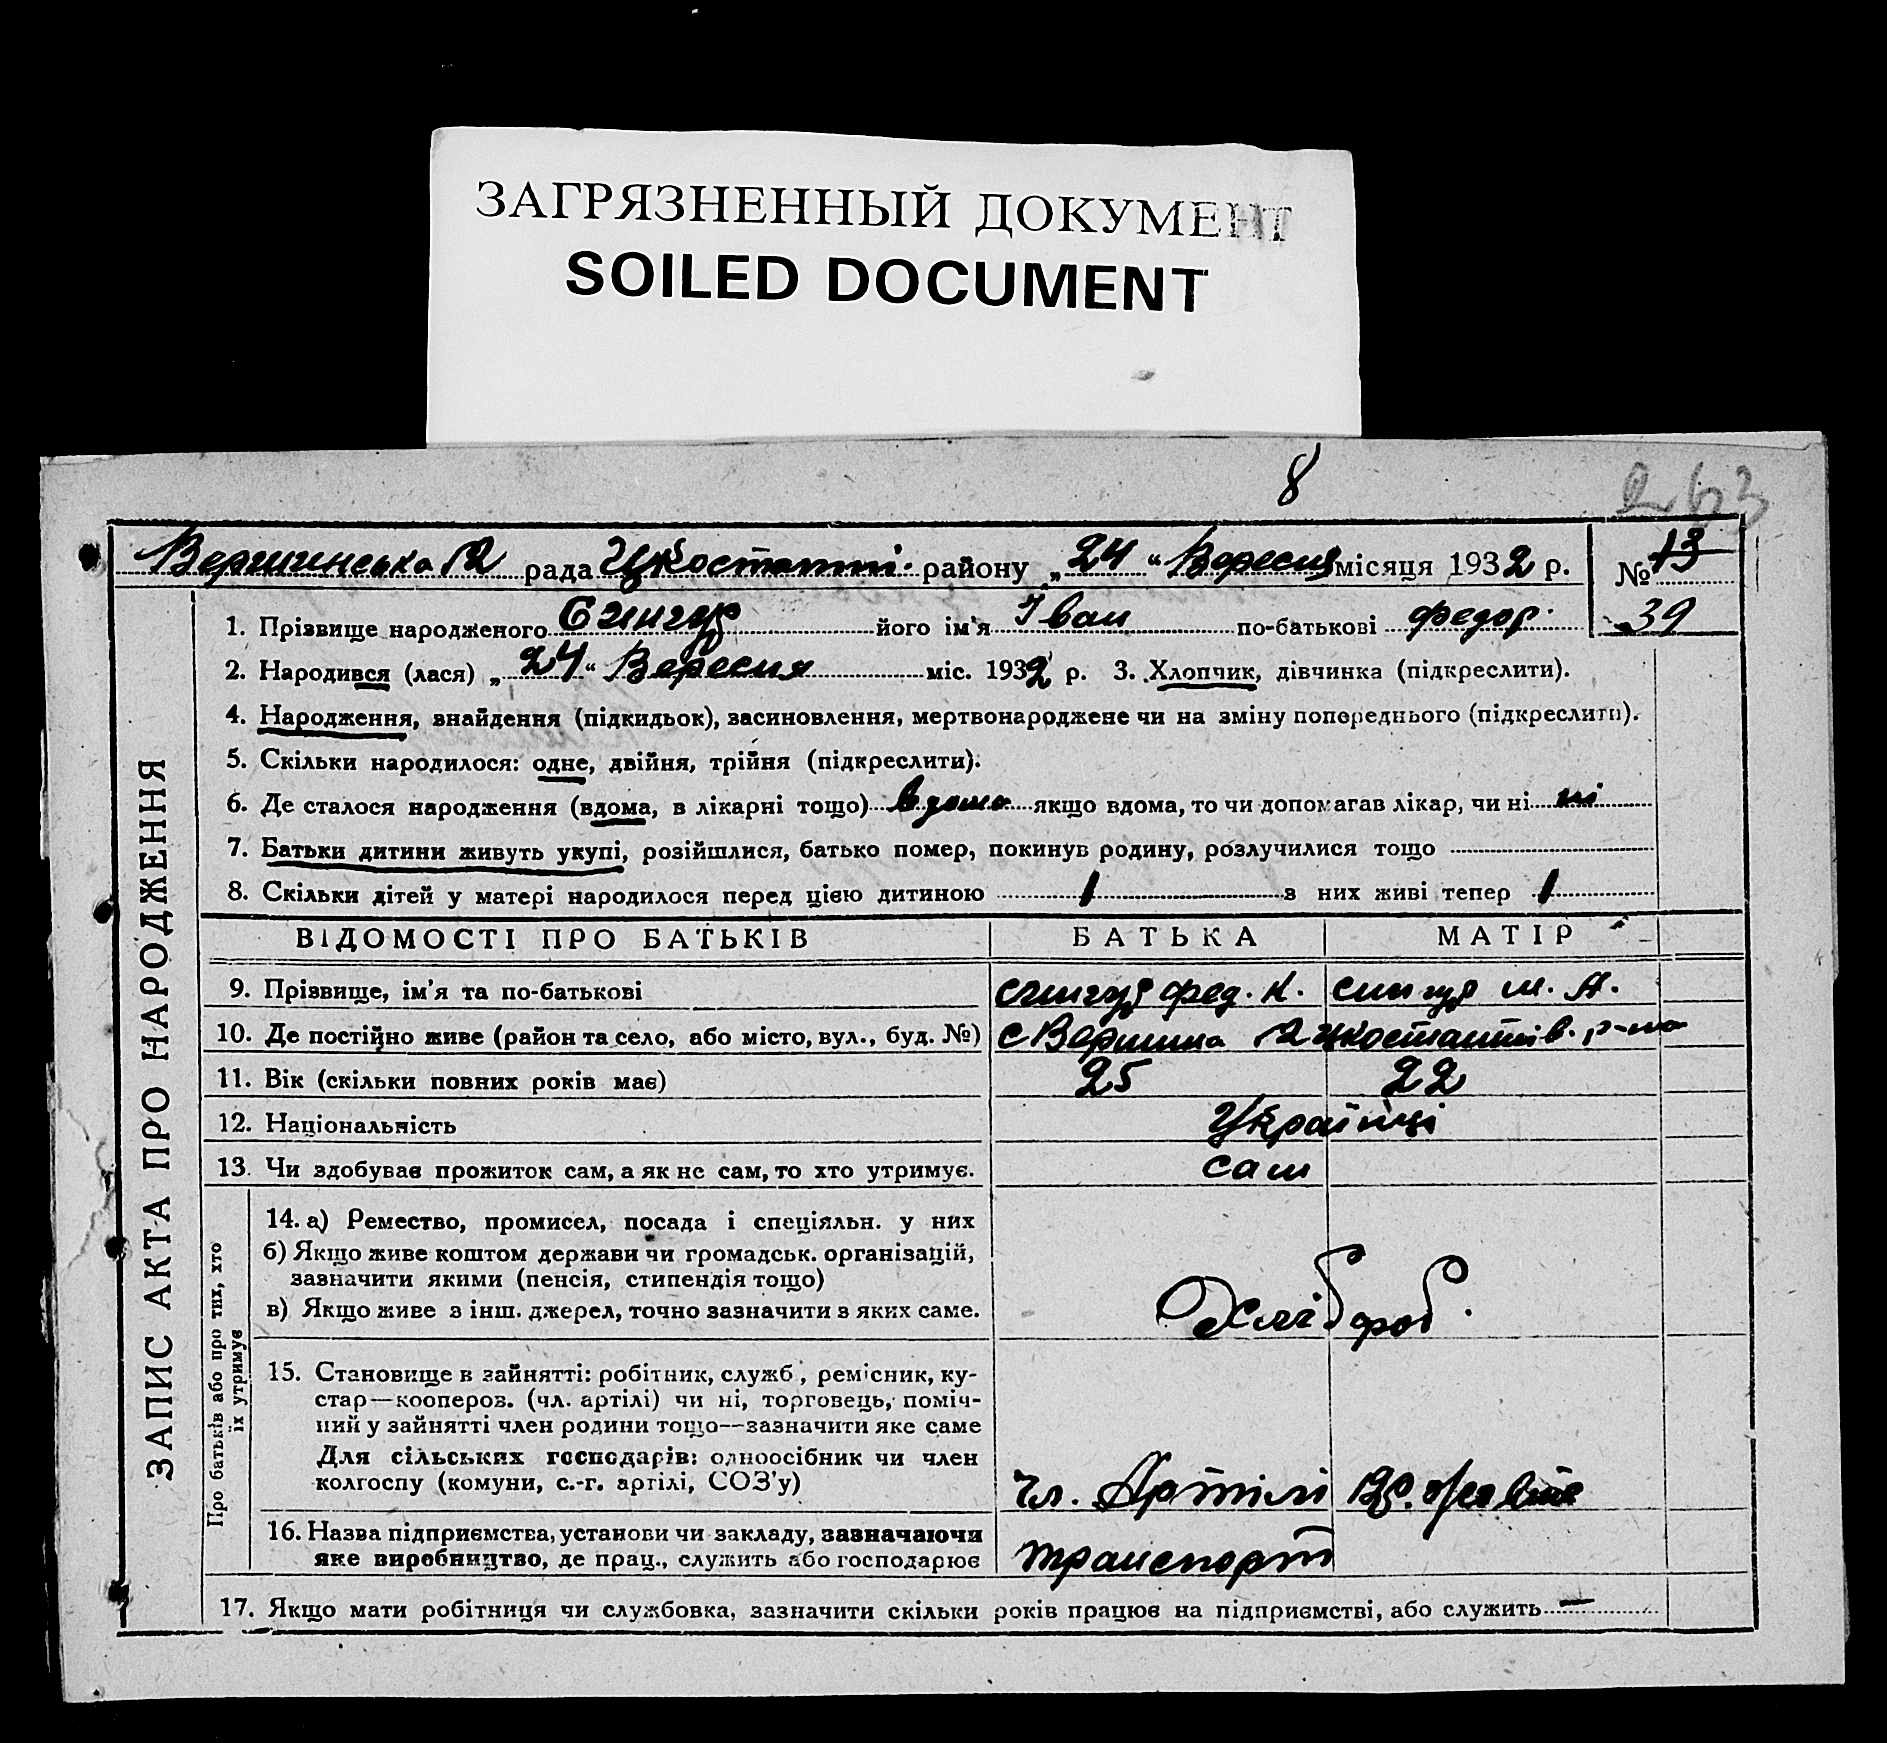 ЗАГРЯЗНЕННЫЙ ДОКУМЕНТ
SOILED DOCUMENT
8
263
Вершинська рада району „24“ Вересня місяця 1932 р. № 13
39
1. Прізвище народженого Снигур його ім'я Іван по-батькові Федор.
2. Народився (лася) „24“ Вересня міс. 1932 р. 3. Хлопчик, дівчинка (підкреслити).
4. Народження, внайдення (підкидьок), засиновлення, мертвонароджене чи на зміну попереднього (підкреслити).
5. Скільки народилося: одне, двійня, трійня (підкреслити).
6. Де сталося народження (вдома, в лікарні тощо) вдома якщо вдома, то чи допомагав лікар, чи ні ні
7. Батьки дитини живуть укупі, розійшлися, батько помер, покинув родину, розлучилися тощо
8. Скільки дітей у матері народилося перед цією дитиною 1 з них живі тепер 1
ЗАПИС АКТА ПРО НАРОДЖЕННЯ
ВІДОМОСТІ ПРО БАТЬКІВ БАТЬКА МАТІР
9. Прізвище, ім'я та по-батькові Снигур Фед. К. Снигур М. А.
10. Де постійно живе (район та село, або місто, вул., буд. №) с Вершина р-на
11. Вік (скільки повних років має) 25 22
12. Національність Українці
13. Чи здобуває прожиток сам, а як не сам, то хто утримує. сам
Про батьків або про тих, хто
їх утримує
14. а) Ремество, промисел, посада і спеціяльн. у них
б) Якщо живе коштом держави чи громадськ. організацій,
зазначити якими (пенсія, стипендія тощо)
в) Якщо живе з інш. джерел, точно зазначити з яких саме. Хлібороб.
15. Становище в зайнятті: робітник, служб., ремісник, ку-
стар—кооперов. (чл. артілі) чи ні, торговець, поміч-
ний у зайнятті член родини тощо—зазначити яке саме
Для сільських господарів: одноосібник чи член
колгоспу (комуни, с.-г. артілі, СОЗ'у) чл. Артілі
16. Назва підприємства, установи чи закладу, зазначаючи
яке виробництво, де прац., служить або господарює транспорт
17. Якщо мати робітниця чи службовка, зазначити скільки років працює на підприємстві, або служить —